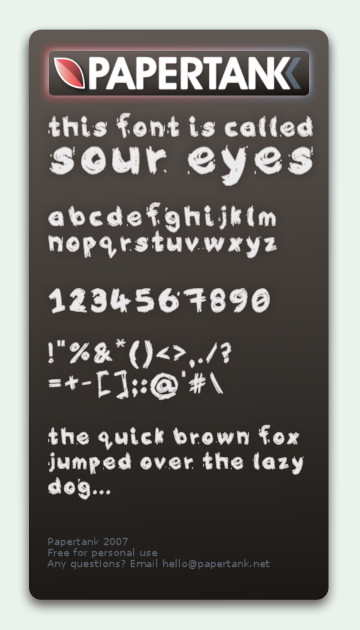 PAPERTANK
this font is called
sour eyes
abcdefghijklm
nopqrstuvwxyz
1234567890
!"%&*()<>,./?
=+-[];:@'#\
the quick brown fox
jumped over the lazy
dog...
Papertank 2007
Free for personal use
Any questions? Email hello@papertank.net